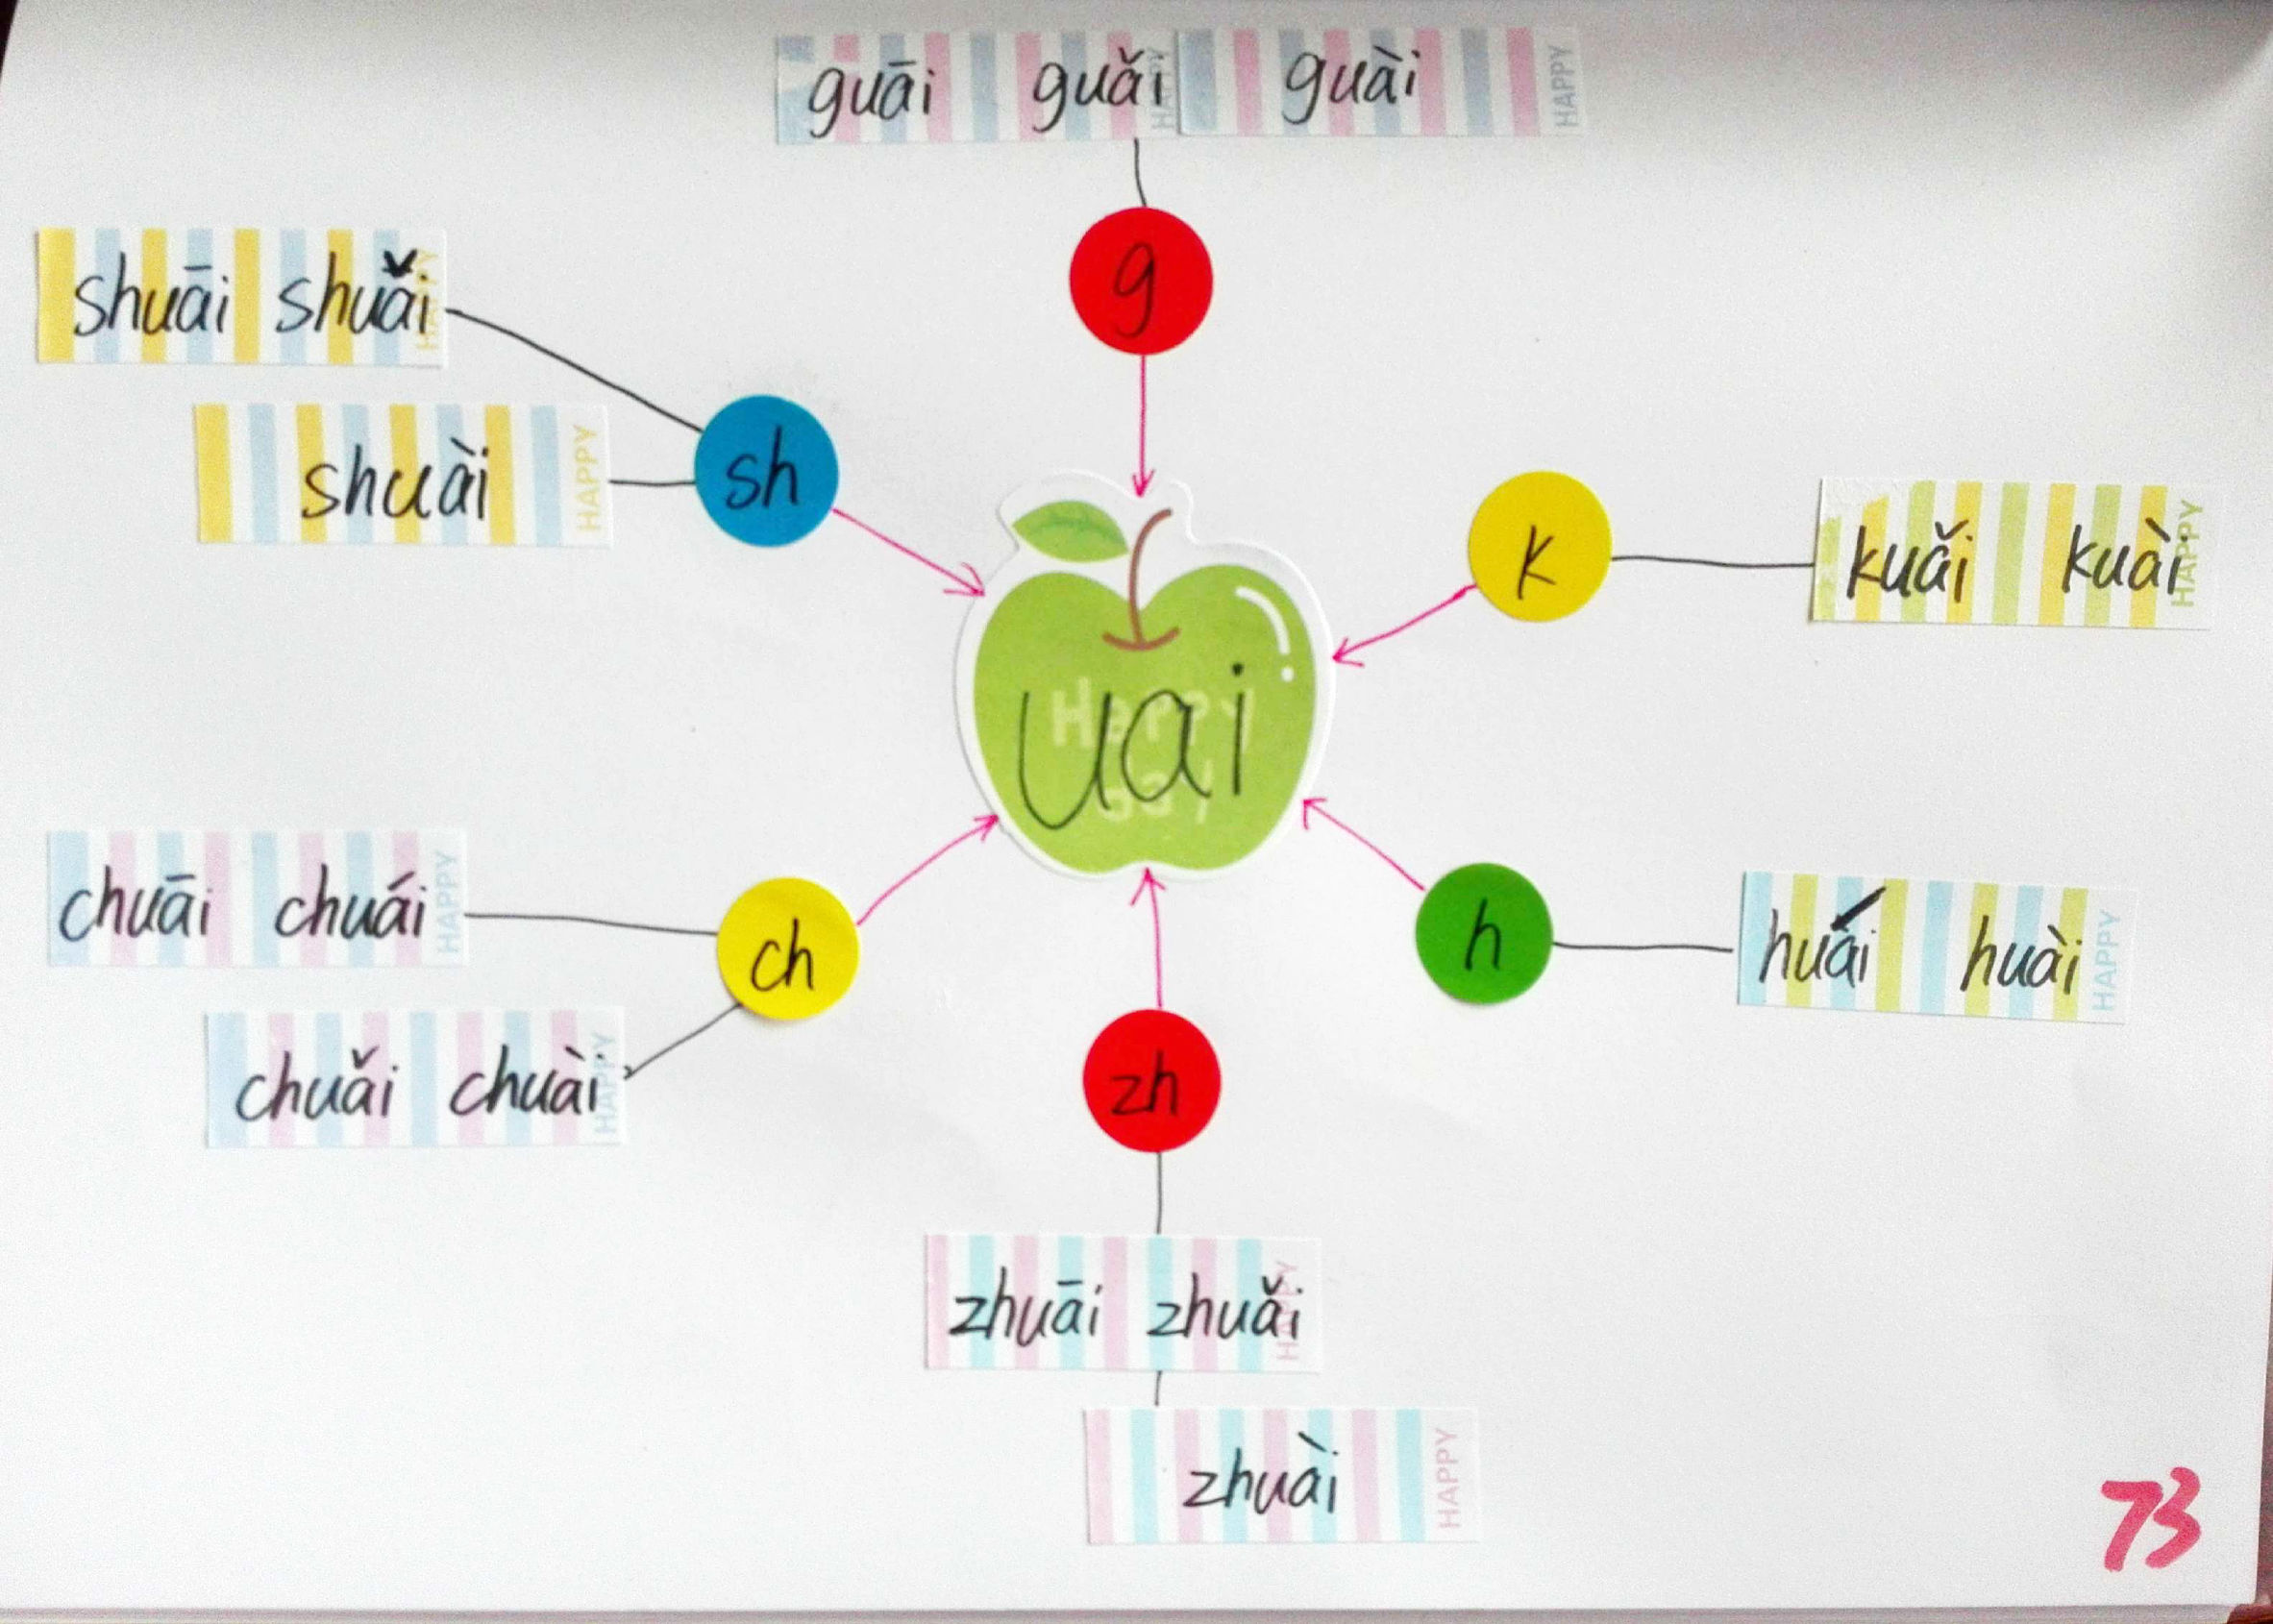 guāi guǎi guài
HAPPY HAPPY
g
shuāi shuǎi
HAPPY
shuài
HAPPY
sh
k
kuǎi kuài
HAPPY
uai
Happy
day
chuāi chuái
HAPPY
ch
chuǎi chuài
HAPPY
h
huái huài
HAPPY
zh
zhuāi zhuǎi
HAPPY
zhuài
HAPPY
73